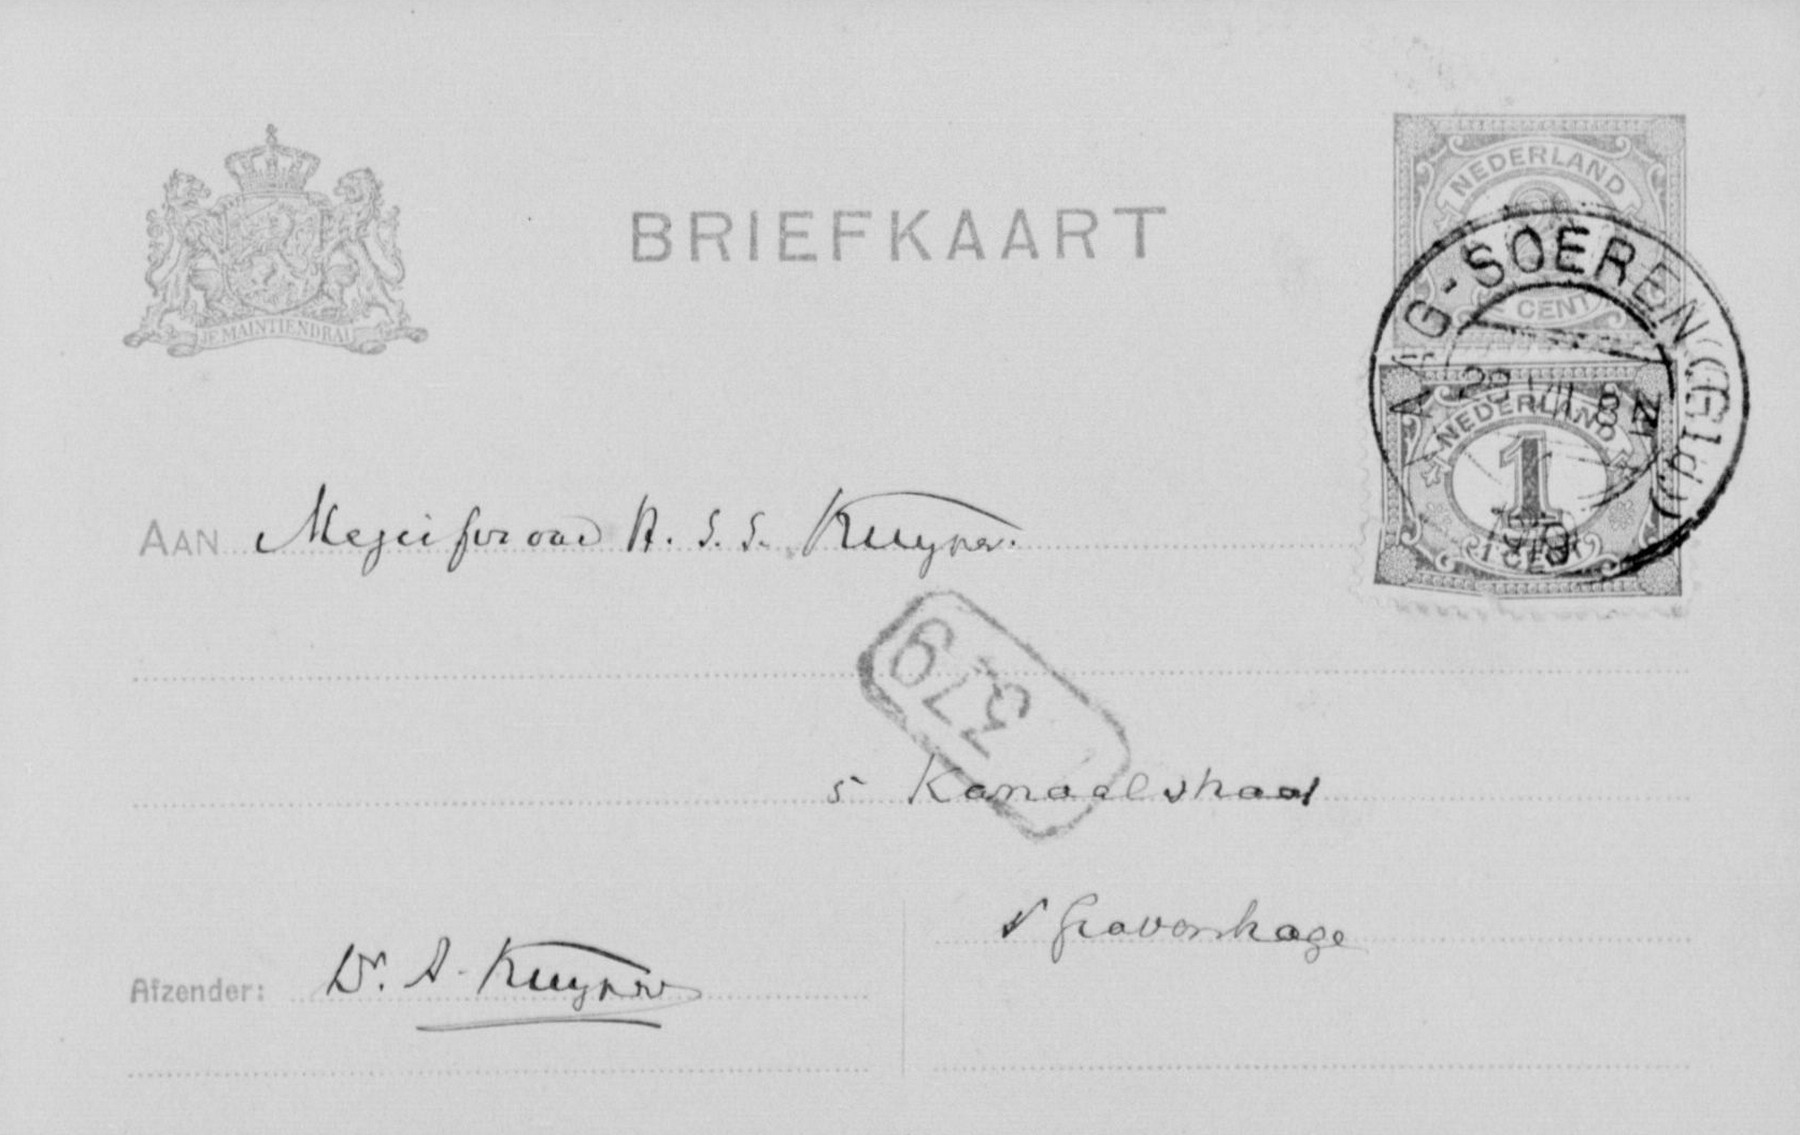 BRIEFKAART
JE MAINTIENDRAI
NEDERLAND
CENT
LAAG-SOEREN (Gld.)
29 VII 8 N
1919
NEDERLAND
1
1 CENT
AAN Mejuffrouw H. S. S. Kuyper.
379
5 Kanaalstraat
's Gravenhage
Afzender: Dr. A. Kuyper